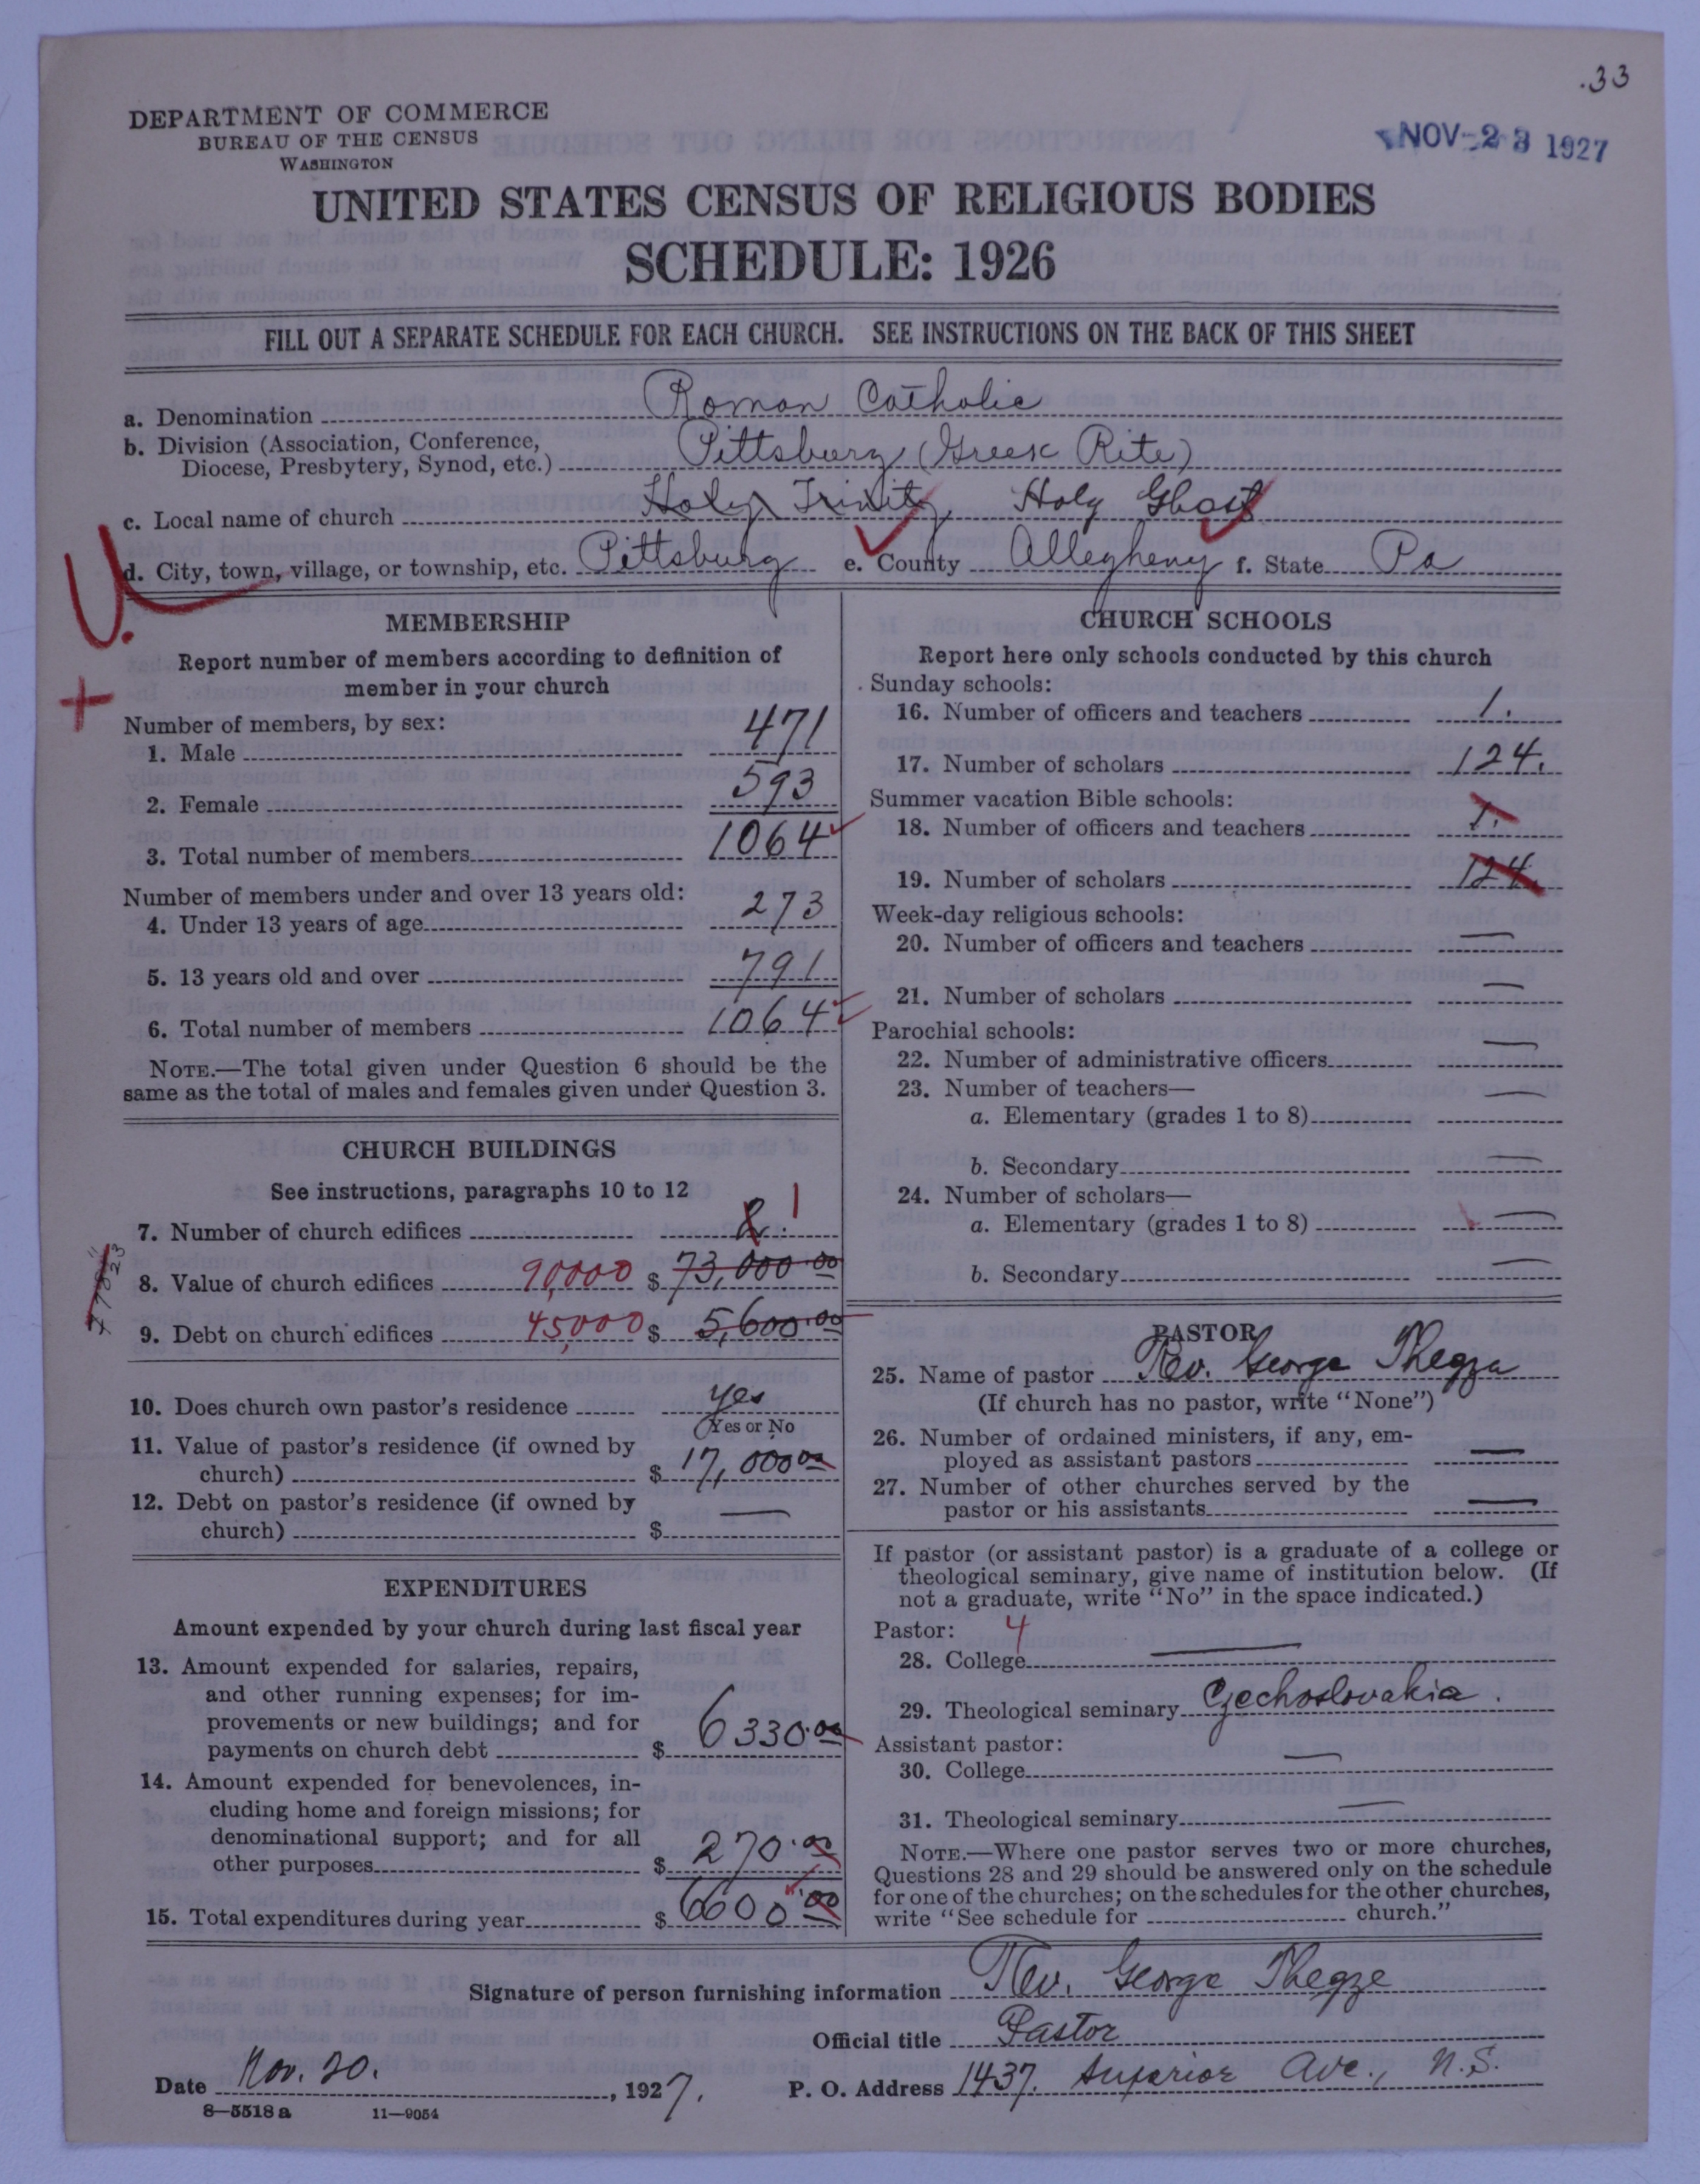 .33
DEPARTMENT OF COMMERCE
BUREAU OF THE CENSUS
WASHINGTON
NOV 23 1927
UNITED STATES CENSUS OF RELIGIOUS BODIES
SCHEDULE: 1926
FILL OUT A SEPARATE SCHEDULE FOR EACH CHURCH. SEE INSTRUCTIONS ON THE BACK OF THIS SHEET
a. Denomination Roman Catholic
b. Division (Association, Conference,
Diocese, Presbytery, Synod, etc.) Pittsburg (Greek Rite)
c. Local name of church Holy Trinity, Holy Ghost
d. City, town, village, or township, etc. Pittsburg e. County Allegheny f. State Pa
U.
+
MEMBERSHIP
Report number of members according to definition of
member in your church
Number of members, by sex:
1. Male 471
2. Female 593
3. Total number of members 1064
Number of members under and over 13 years old:
4. Under 13 years of age 273
5. 13 years old and over 791
6. Total number of members 1064
NOTE.—The total given under Question 6 should be the
same as the total of males and females given under Question 3.
CHURCH BUILDINGS
See instructions, paragraphs 10 to 12
7. Number of church edifices 2. 1
8. Value of church edifices 90,000 $ 73,000.00
9. Debt on church edifices 45,000 $ 5,600.00
10. Does church own pastor's residence yes
Yes or No
11. Value of pastor's residence (if owned by
church) $ 17,000 00
12. Debt on pastor's residence (if owned by
church) $ —
EXPENDITURES
Amount expended by your church during last fiscal year
13. Amount expended for salaries, repairs,
and other running expenses; for im-
provements or new buildings; and for
payments on church debt $ 6330.00
14. Amount expended for benevolences, in-
cluding home and foreign missions; for
denominational support; and for all
other purposes $ 270.00
15. Total expenditures during year $ 6600.00
CHURCH SCHOOLS
Report here only schools conducted by this church
Sunday schools:
16. Number of officers and teachers 1.
17. Number of scholars 124.
Summer vacation Bible schools:
18. Number of officers and teachers 1.
19. Number of scholars 124.
Week-day religious schools:
20. Number of officers and teachers —
21. Number of scholars —
Parochial schools:
22. Number of administrative officers —
23. Number of teachers—
a. Elementary (grades 1 to 8) —
b. Secondary —
24. Number of scholars—
a. Elementary (grades 1 to 8) —
b. Secondary —
PASTOR
25. Name of pastor Rev. George Thegza
(If church has no pastor, write "None")
26. Number of ordained ministers, if any, em-
ployed as assistant pastors —
27. Number of other churches served by the
pastor or his assistants —
If pastor (or assistant pastor) is a graduate of a college or
theological seminary, give name of institution below. (If
not a graduate, write "No" in the space indicated.)
Pastor: 4
28. College —
29. Theological seminary Czechoslovakia.
Assistant pastor:
30. College —
31. Theological seminary —
NOTE.—Where one pastor serves two or more churches,
Questions 28 and 29 should be answered only on the schedule
for one of the churches; on the schedules for the other churches,
write "See schedule for church."
Signature of person furnishing information Rev. George Thegze
Official title Pastor
Date Nov. 20. , 1927. P. O. Address 1437. Superior Ave., N.S.
8—5518 a 11—9054